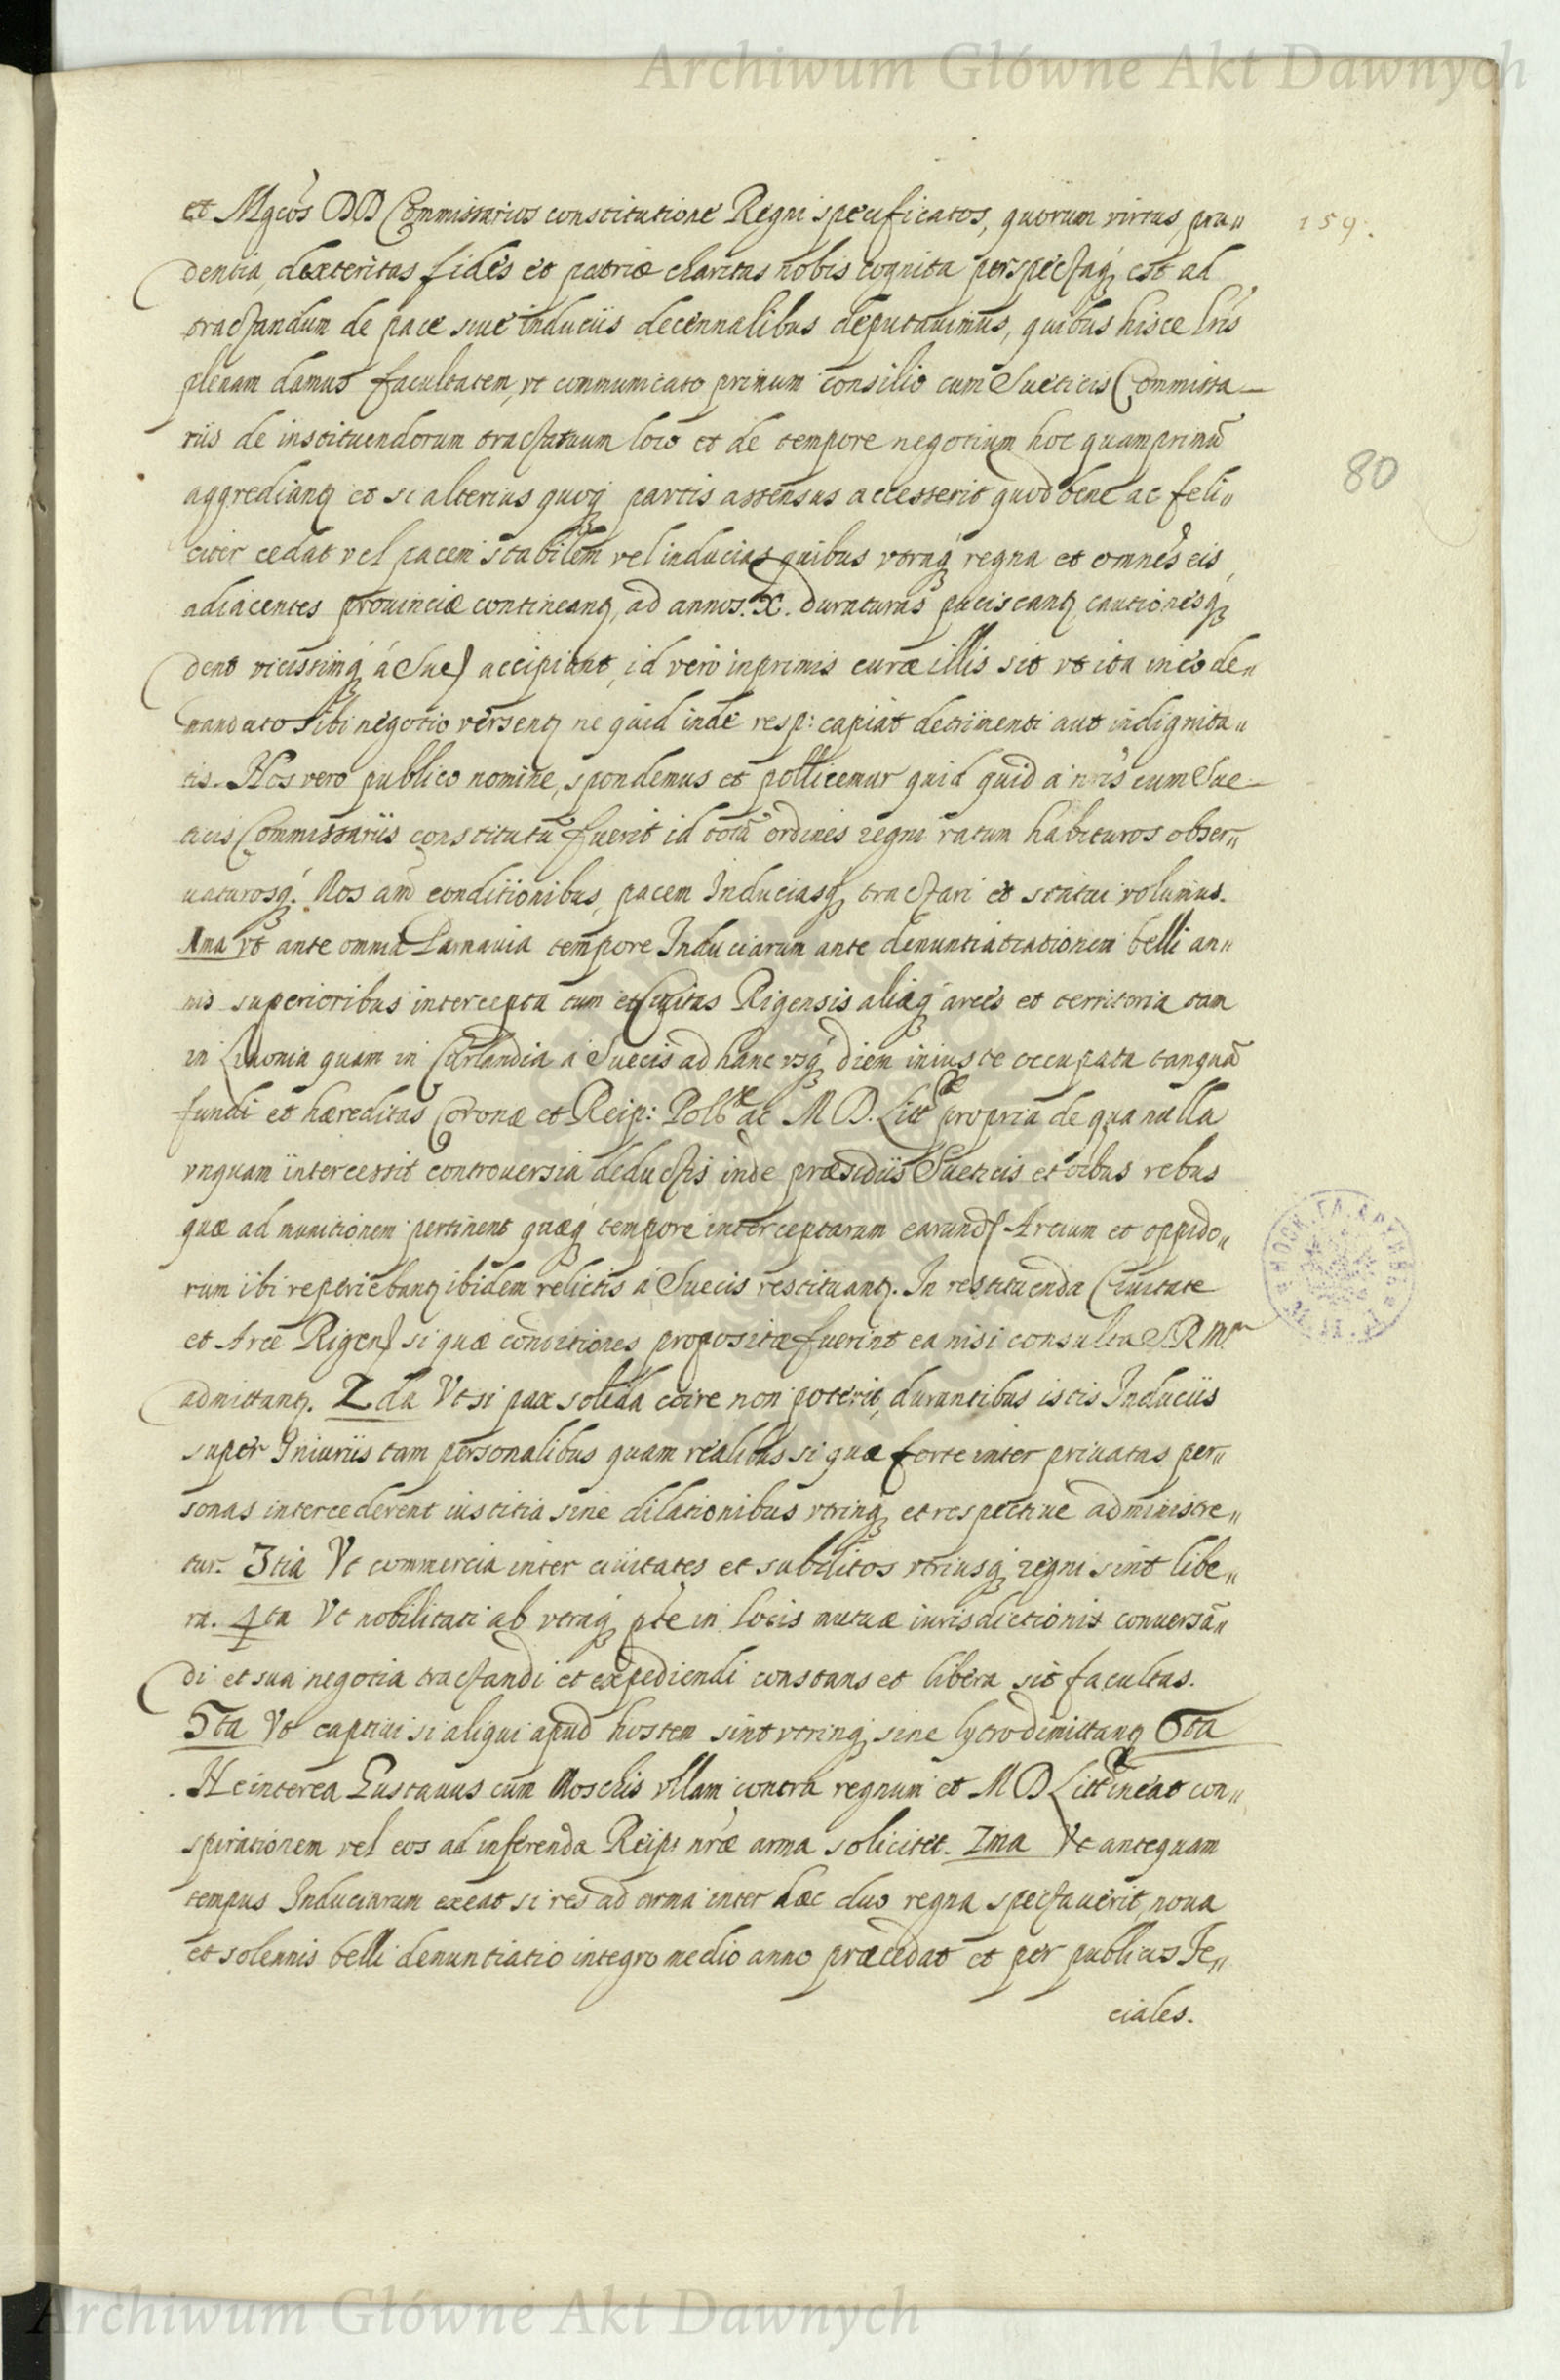 Archiwum Główne Akt Dawnych
et Mgcos DD Commissarios constitutione Regni specificatos, quorum virtus, pru„
159.
dentia, dexteritas fides et patriæ charitas nobis cognita perspectaq́ est ad
tractandum de pace siue induciis decennalibus deputauimus, quibus hisce lr̃is
plenam damus facultatem, vt communicato primum consilio cum Sueticis Commissa—
riis de instituendorum tractatuum loco et de tempore negotium hoc quamprimũ
80
aggrediantꝫ et si alterius quoqꝫ partis assensus accesserit quod bene ac feli„
citer cedat vel pacem stabilem vel inducias quibus vtraqꝫ regna et omnes eis
adiacentes prouinciæ contineantꝫ, ad annos. X. duraturas paciscantꝫ cautionesqꝫ
dent vicissimqꝫ á Sue) accipiant, id vero inprimis curæ illis sit vt ita in eo de„
mandato sibi negotio versentꝫ ne quid inde resp: capiat detrimenti aut indignita„
tis. Nos vero publico nomine, spondemus et pollicemur quid quid a nr̃is cum Sue—
ticis Commissariis constitutũ fuerit id totũ ordines regni ratum habituros obser„
uaturosqꝫ. Nos aũt conditionibus, pacem Induciasqꝫ tractari et statui volumus.
1ma vt ante omnia Parnauia tempore Induciarum ante denuntiatiationem belli an„
nis superioribus intercepta tum et Ciuitas Rigensis aliæqꝫ arces et territoria tam
in Liuonia quam in Curlandia a Suecis ad hanc vsqꝫ diem iniuste occupata tanquã
fundi et hæreditas Coronæ et Reip: Polæ ac M D. Littæ propria de qua nulla
vnquam intercessit controuersia deductis inde præsidiis Sueticis et oĩbus rebus
quæ ad munitionem pertinent quæqꝫ tempore interceptarum earund) Arcium et oppido„
rum ibi reperiebantꝫ ibidem relictis á Suecis restituantꝫ. In restituenda Ciuitate
et Arce Rigen) si quæ conditiones propositæ fuerint ea nisi consulta S. R Mte
admittantꝫ. 2da Vt si pax solida coire non poterit, durantibus istis Induciis
super Iniuriis tam personalibus quam realibus si quæ forte inter priuatas per„
sonas intercederent iustitia sine dilationibus vtrinqꝫ et respectiue administre„
tur. 3tia Vt commercia inter ciuitates et subditos vtriusqꝫ regni sint libe„
ra. 4ta Vt nobilitati ab vtraqꝫ pte in locis mutuæ iurisdictionis conuersã„
di et sua negotia tractandi et expediendi constans et libera sit facultas.
5ta Vt captiui si aliqui apud hostem sint vtrinqꝫ sine lytro dimittantꝫ 6ta
Ne interea Gustauus cum Moschis vllam contra regnum et M D Littæ ineat con„
spirationem vel eos ad inferenda Reip: nr̃æ arma solicitet. 7ma Vt antequam
tempus Induciarum exeat si res ad arma inter hæc duo regna spectauerit, noua
et solennis belli denuntiatio integro medio anno præcedat et per publicos Fe„
ciales.
Archiwum Główne Akt Dawnych